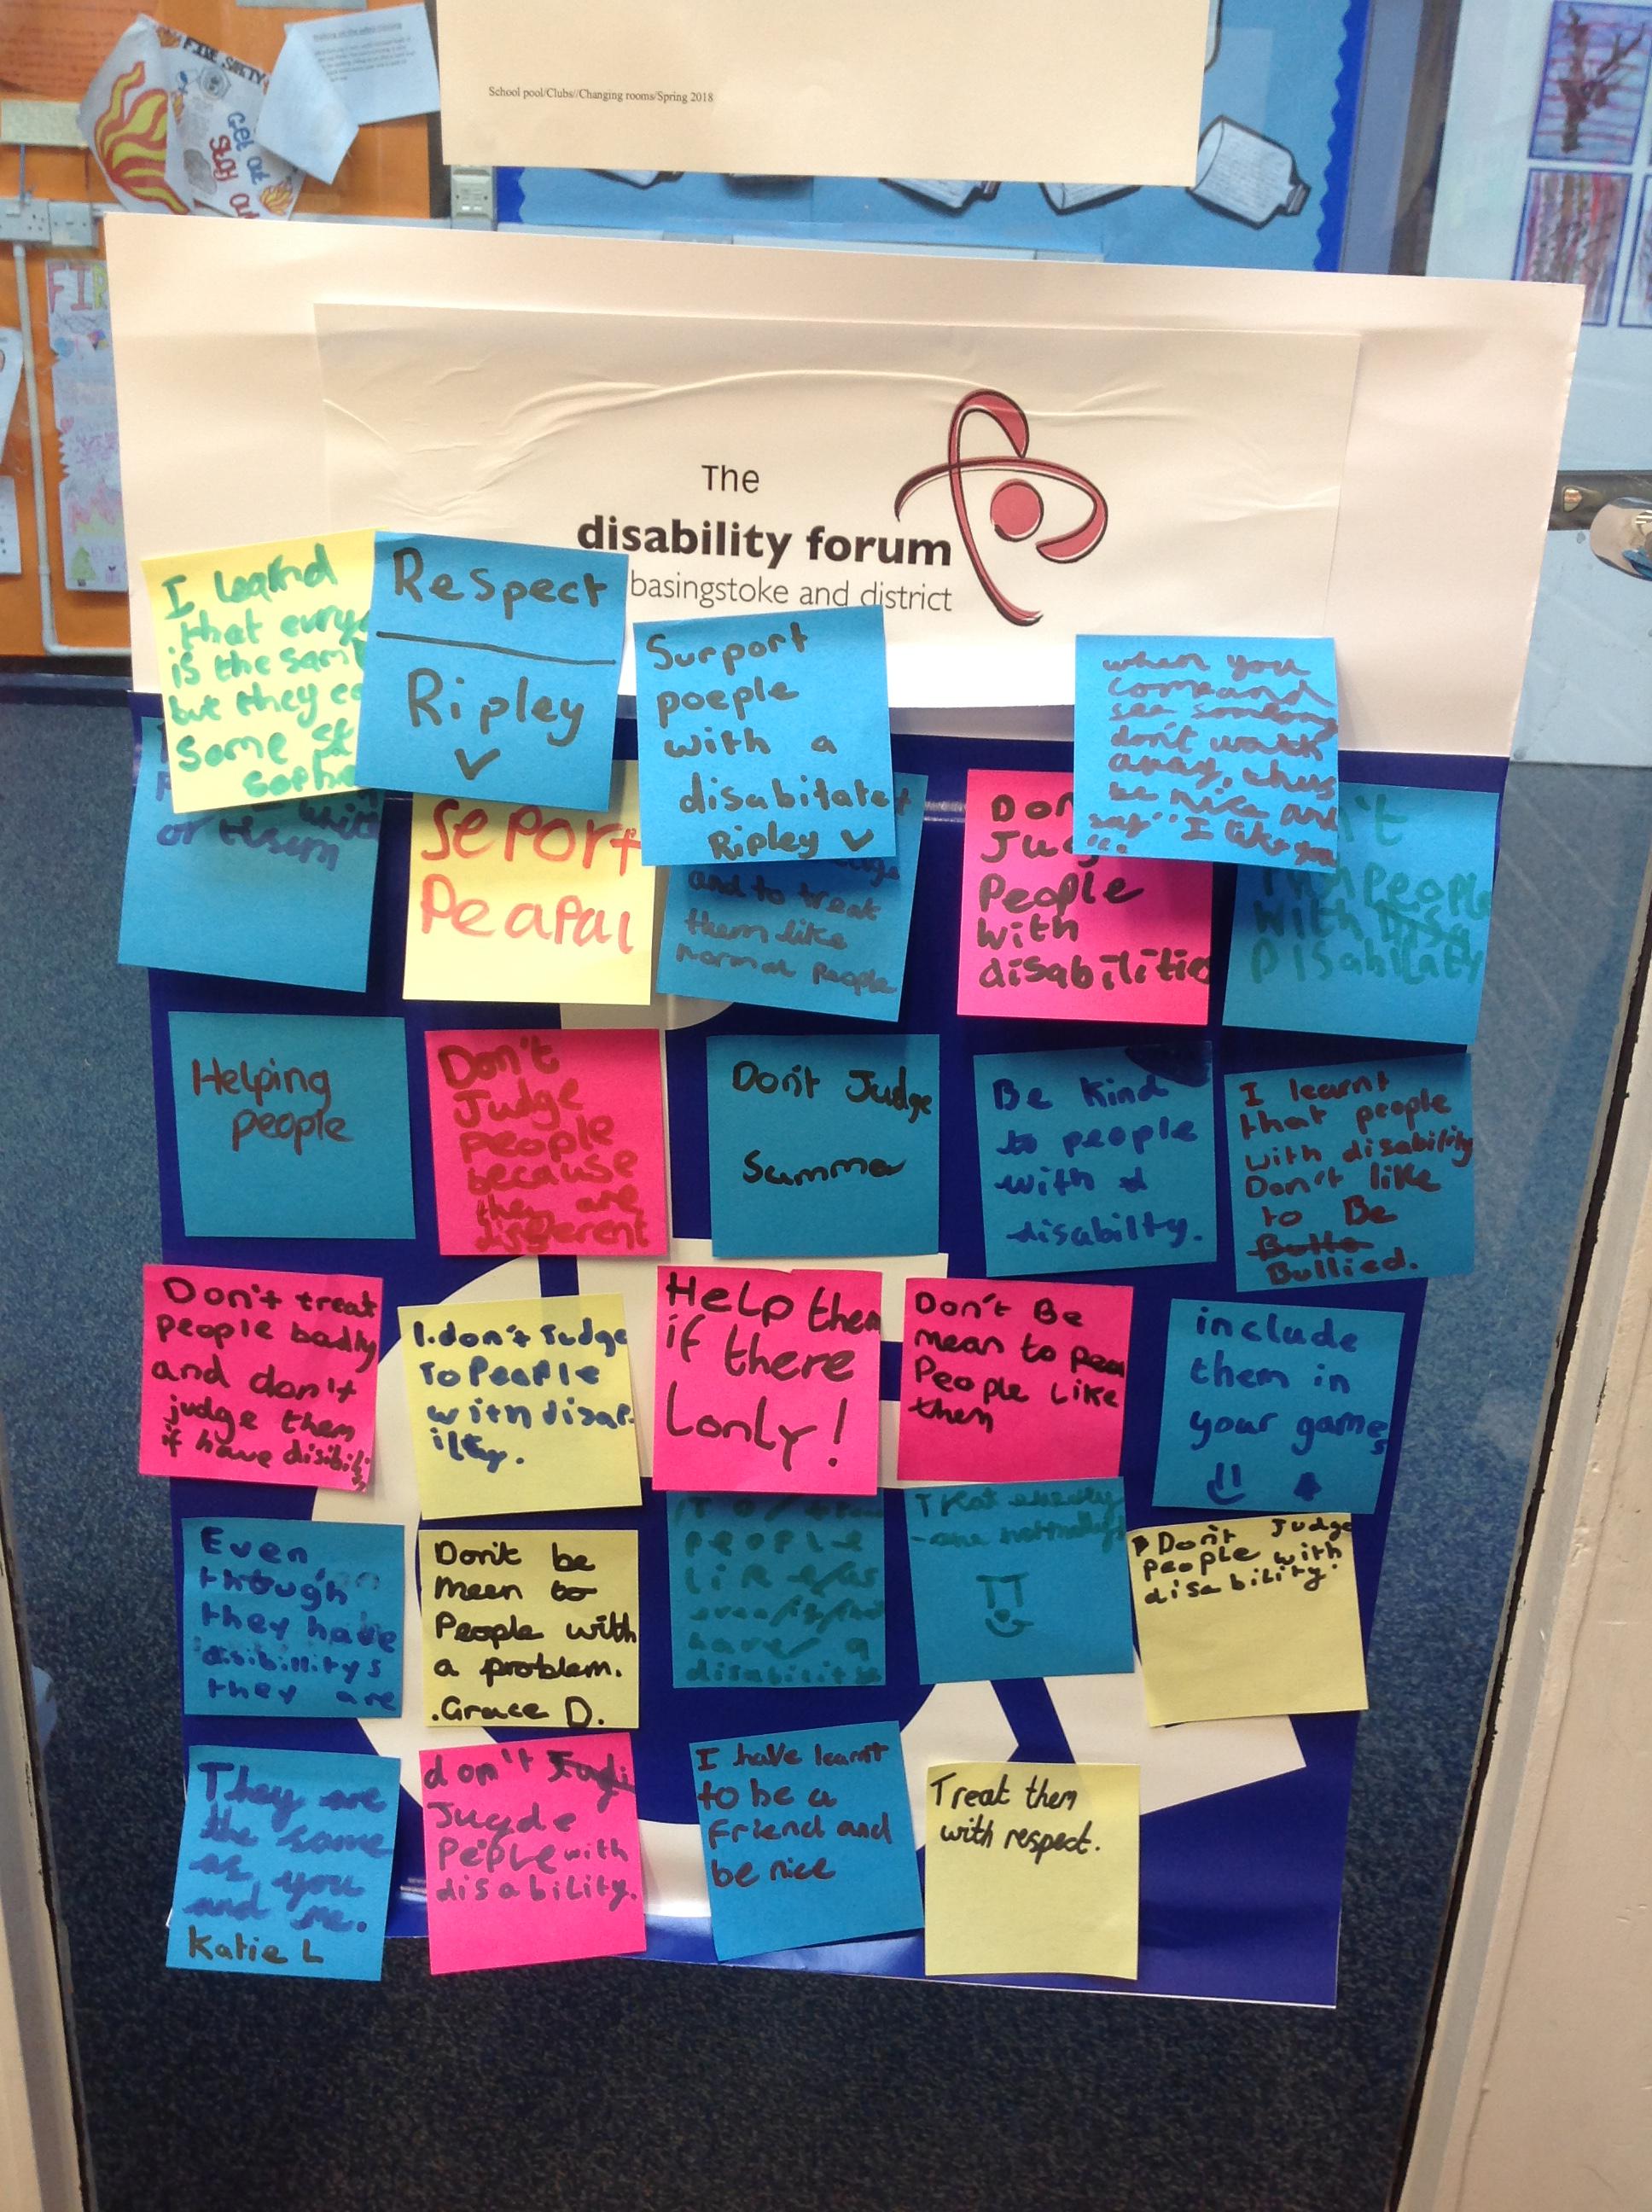 FIRE SAFETY
Get out
Stay out
School pool/Clubs//Changing rooms/Spring 2018
FIR
The
disability forum
basingstoke and district
I learnd
that every
is the sam
but they
Some
Soph
Respect
Ripley
Surport
poeple
with a
disabitate
Ripley
when you
come and
see someone
don't walk
away, thus
be nice and
say "I like you
or them
Seport
Peapal
and to treat
them like
normal people
Don
Judg
People
with
disabilitie
People
with Disa
Disabilaty
Helping
people
Don't
Judge
people
because
they are
different
Don't Judge
Summer
Be kind
to people
with a
disabilty.
I learnt
that people
with disability
Don't like
to Be
Bullied.
Don't treat
people badly
and don't
judge them
if have disibili
1.don't Judge
To People
with disap-
ilty.
Help them
if there
Lonly!
Don't Be
mean to pea
People Like
them
include
them in
your games
Even
though
they have
disibillitys
they are
Don't be
meen to
People with
a problem.
.Grace D.
people
like
have a
disability
Treat
Don't Judge
people with
disability.
They are
the same
as you
and me.
Katie L
don't Judi
Jugde
Peple with
disability.
I have learnt
to be a
friend and
be nice
Treat them
with respect.